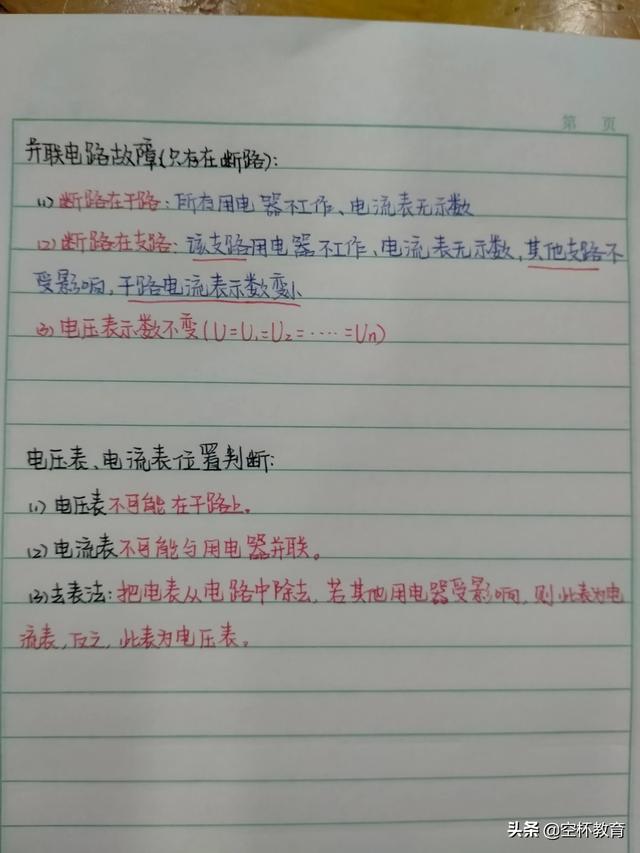 第 页
并联电路故障(只存在断路):
(1)断路在干路:所有用电器不工作、电流表无示数
(2)断路在支路:该支路用电器不工作、电流表无示数,其他支路不
受影响,干路电流表示数变小
(3)电压表示数不变(U=U₁=U₂=……=Un)
电压表、电流表位置判断:
(1)电压表不可能在干路上。
(2)电流表不可能与用电器并联。
(3)去表法:把电表从电路中除去,若其他用电器受影响,则此表为电
流表,反之,此表为电压表。
头条 @空杯教育